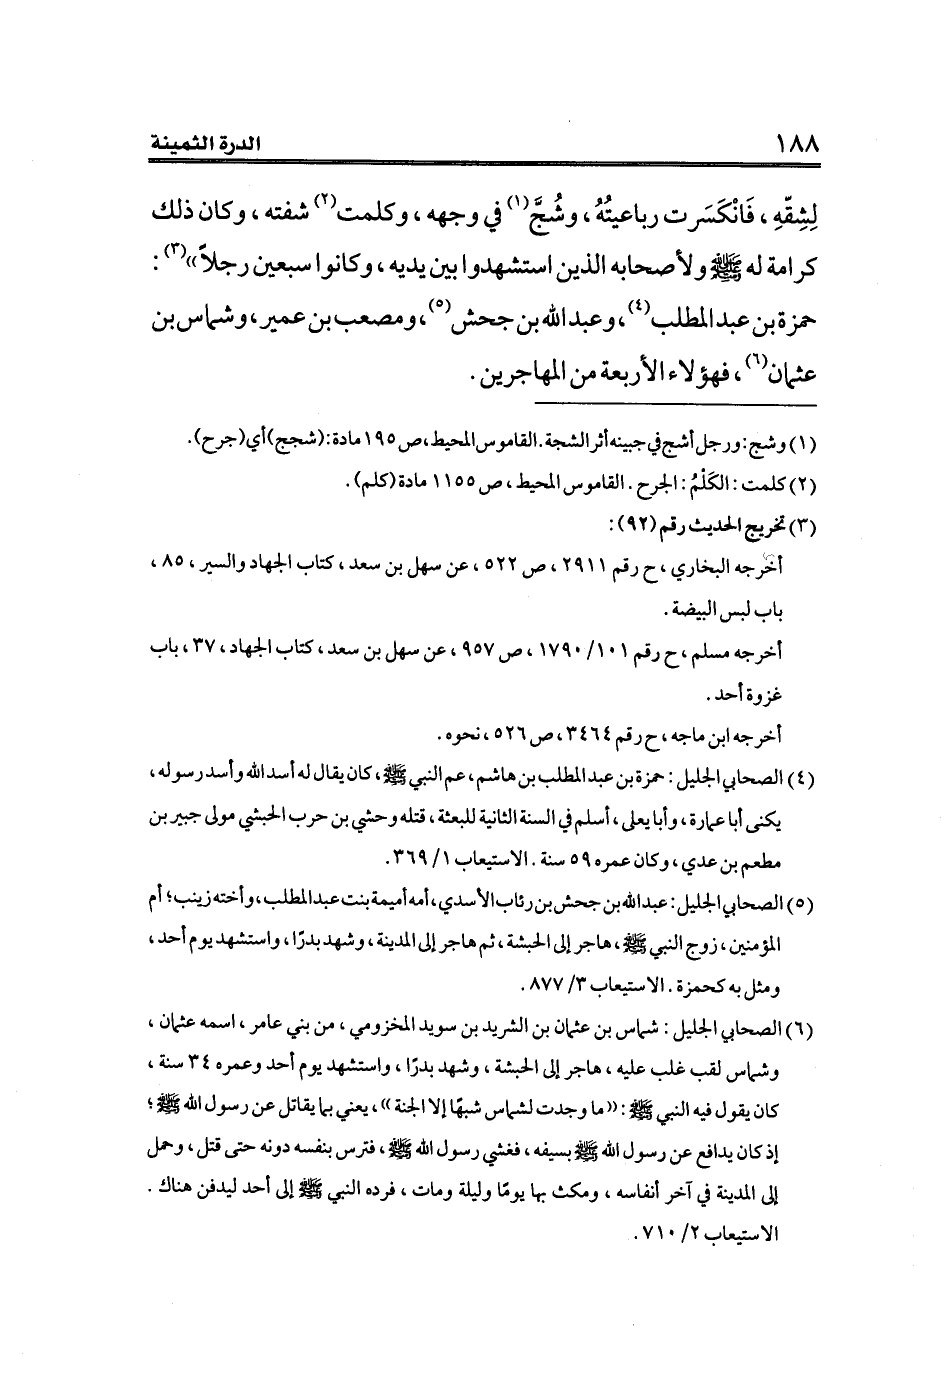 ١٨٨
الدرة الثمينة
لِشِقِّهِ ، فَانْكَسَرت رباعيتُهُ ، وشُجَّ(١) في وجهه ، وكلمت(٢) شفته ، وكان ذلك
كرامة له ﷺ ولأصحابه الذين استشهدوا بين يديه ، وكانوا سبعين رجلاً»(٣) :
حمزة بن عبد المطلب(٤) ، وعبد الله بن جحش(٥) ، ومصعب بن عمير ، وشماس بن
عثمان(٦) ، فهؤلاء الأربعة من المهاجرين .
(١) وشج : ورجل أشج في جبينه أثر الشجة . القاموس المحيط ، ص ١٩٥ مادة : (شجج) أي (جرح) .
(٢) كلمت : الكَلْمُ : الجرح . القاموس المحيط ، ص ١١٥٥ مادة (كلم) .
(٣) تخريج الحديث رقم (٩٢) :
أخرجه البخاري ، ح رقم ٢٩١١ ، ص ٥٢٢ ، عن سهل بن سعد ، كتاب الجهاد والسير ، ٨٥ ،
باب لبس البيضة .
أخرجه مسلم ، ح رقم ١٠١/ ١٧٩٠ ، ص ٩٥٧ ، عن سهل بن سعد ، كتاب الجهاد ، ٣٧ ، باب
غزوة أحد .
أخرجه ابن ماجه ، ح رقم ٣٤٦٤ ، ص ٥٢٦ ، نحوه .
(٤) الصحابي الجليل : حمزة بن عبد المطلب بن هاشم ، عم النبي ﷺ ، كان يقال له أسد الله وأسد رسوله ،
يكنى أبا عمارة ، وأبا يعلى ، أسلم في السنة الثانية للبعثة ، قتله وحشي بن حرب الحبشي مولى جبير بن
مطعم بن عدي ، وكان عمره ٥٩ سنة . الاستيعاب ١/ ٣٦٩ .
(٥) الصحابي الجليل : عبد الله بن جحش بن رئاب الأسدي ، أمه أميمة بنت عبد المطلب ، وأخته زينب ؛ أم
المؤمنين ، زوج النبي ﷺ ، هاجر إلى الحبشة ، ثم هاجر إلى المدينة ، وشهد بدرًا ، واستشهد يوم أحد ،
ومثل به كحمزة . الاستيعاب ٣/ ٨٧٧ .
(٦) الصحابي الجليل : شماس بن عثمان بن الشريد بن سويد المخزومي ، من بني عامر ، اسمه عثمان ،
وشماس لقب غلب عليه ، هاجر إلى الحبشة ، وشهد بدرًا ، واستشهد يوم أحد وعمره ٣٤ سنة ،
كان يقول فيه النبي ﷺ : «ما وجدت لشماس شبهًا إلا الجنة» ، يعني بما يقاتل عن رسول الله ﷺ ؛
إذ كان يدافع عن رسول الله ﷺ بسيفه ، فغشي رسول الله ﷺ ، فترس بنفسه دونه حتى قتل ، وحمل
إلى المدينة في آخر أنفاسه ، ومكث بها يومًا وليلة ومات ، فرده النبي ﷺ إلى أحد ليدفن هناك .
الاستيعاب ٢/ ٧١٠ .